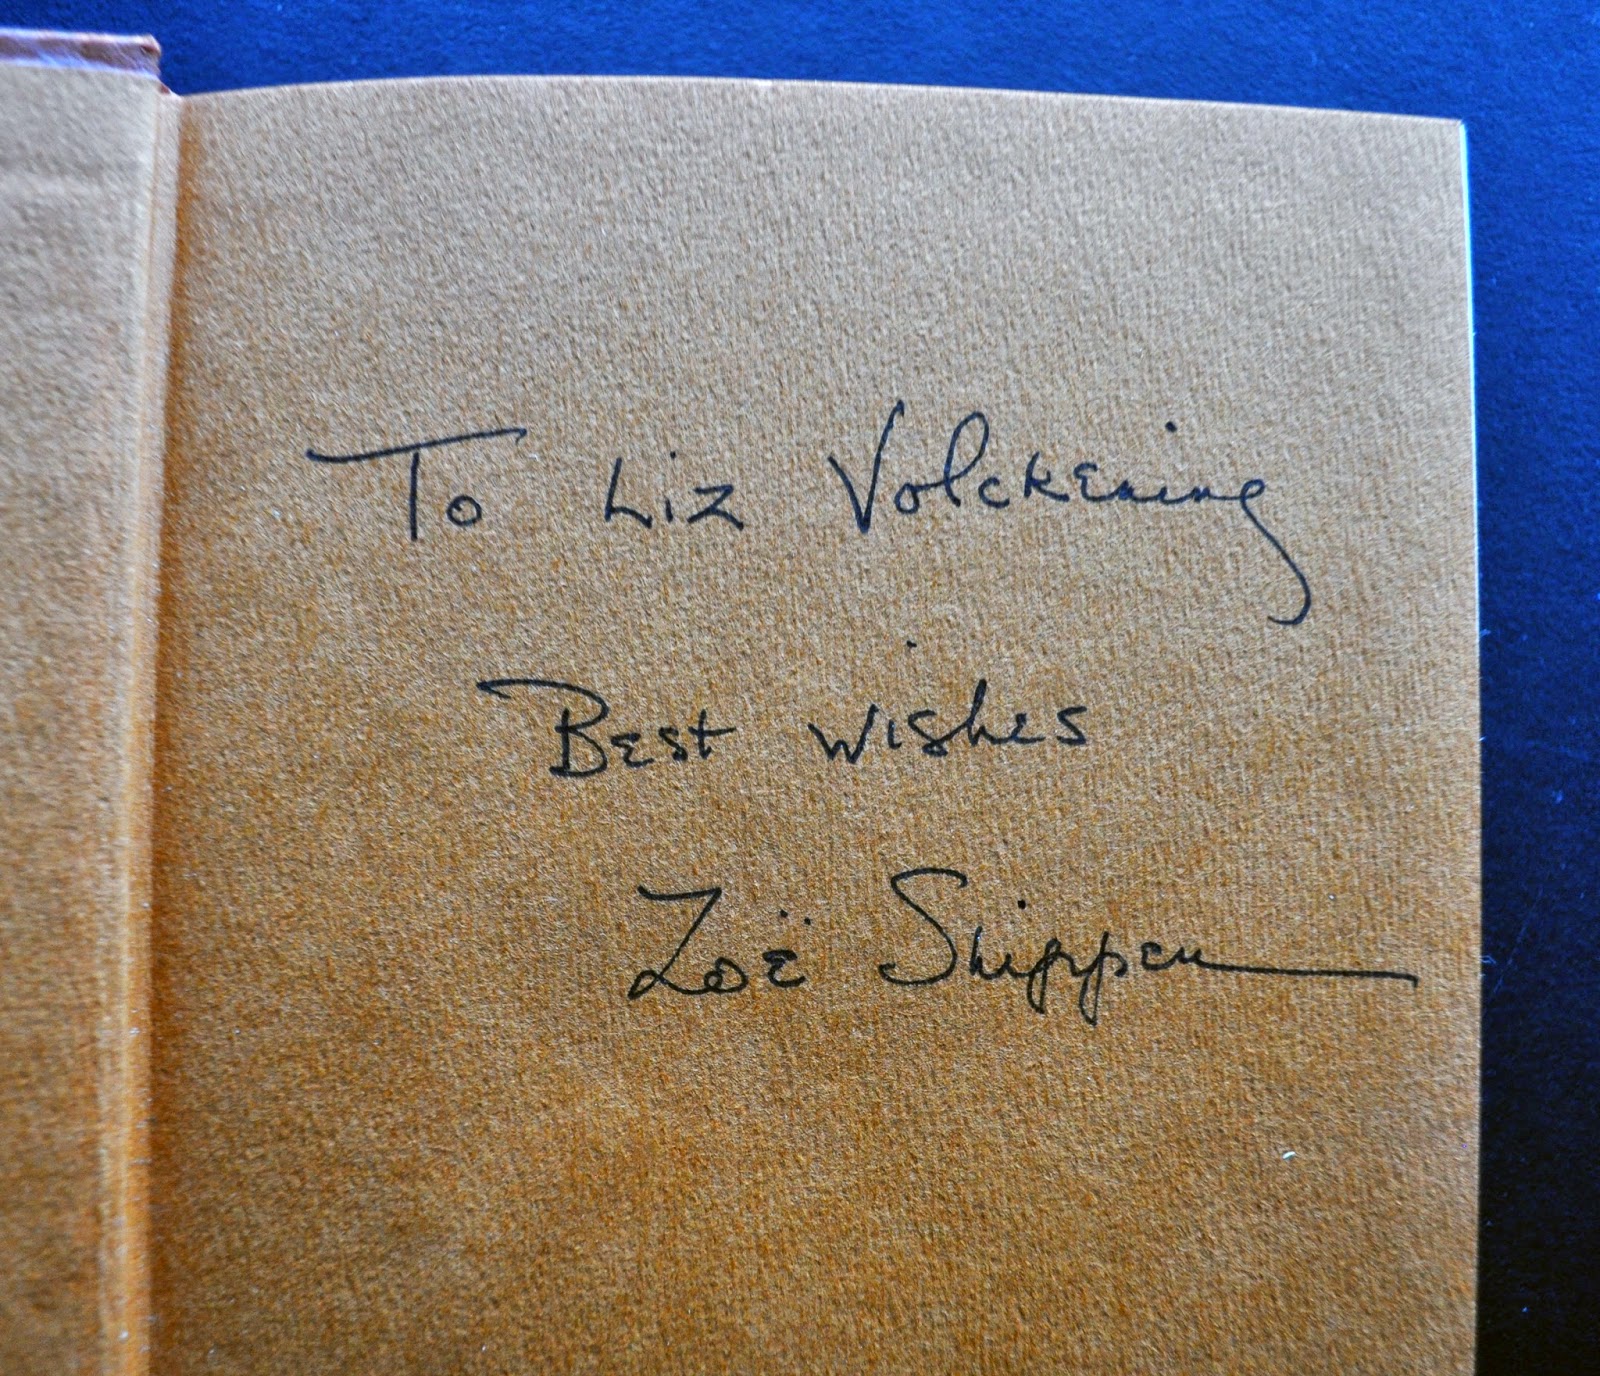 To Liz Volckening
Best wishes
Zoë Shippen